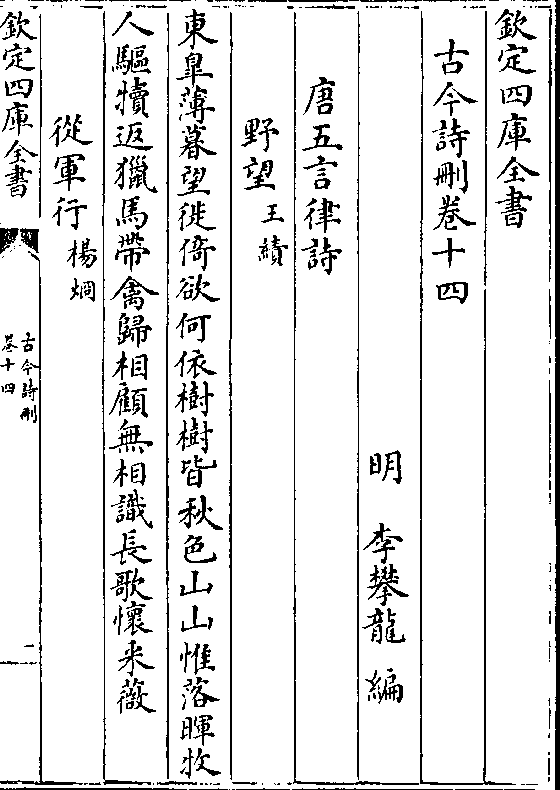 欽定四庫全書
古今詩刪卷十四
明 李攀龍 編
唐五言律詩
野望 王績
東臯薄暮望徙倚欲何依樹樹皆秋色山山惟落暉牧
人驅犢返獵馬帶禽歸相顧無相識長歌懷采薇
從軍行 楊烱
欽定四庫全書
古今詩刪
卷十四
一